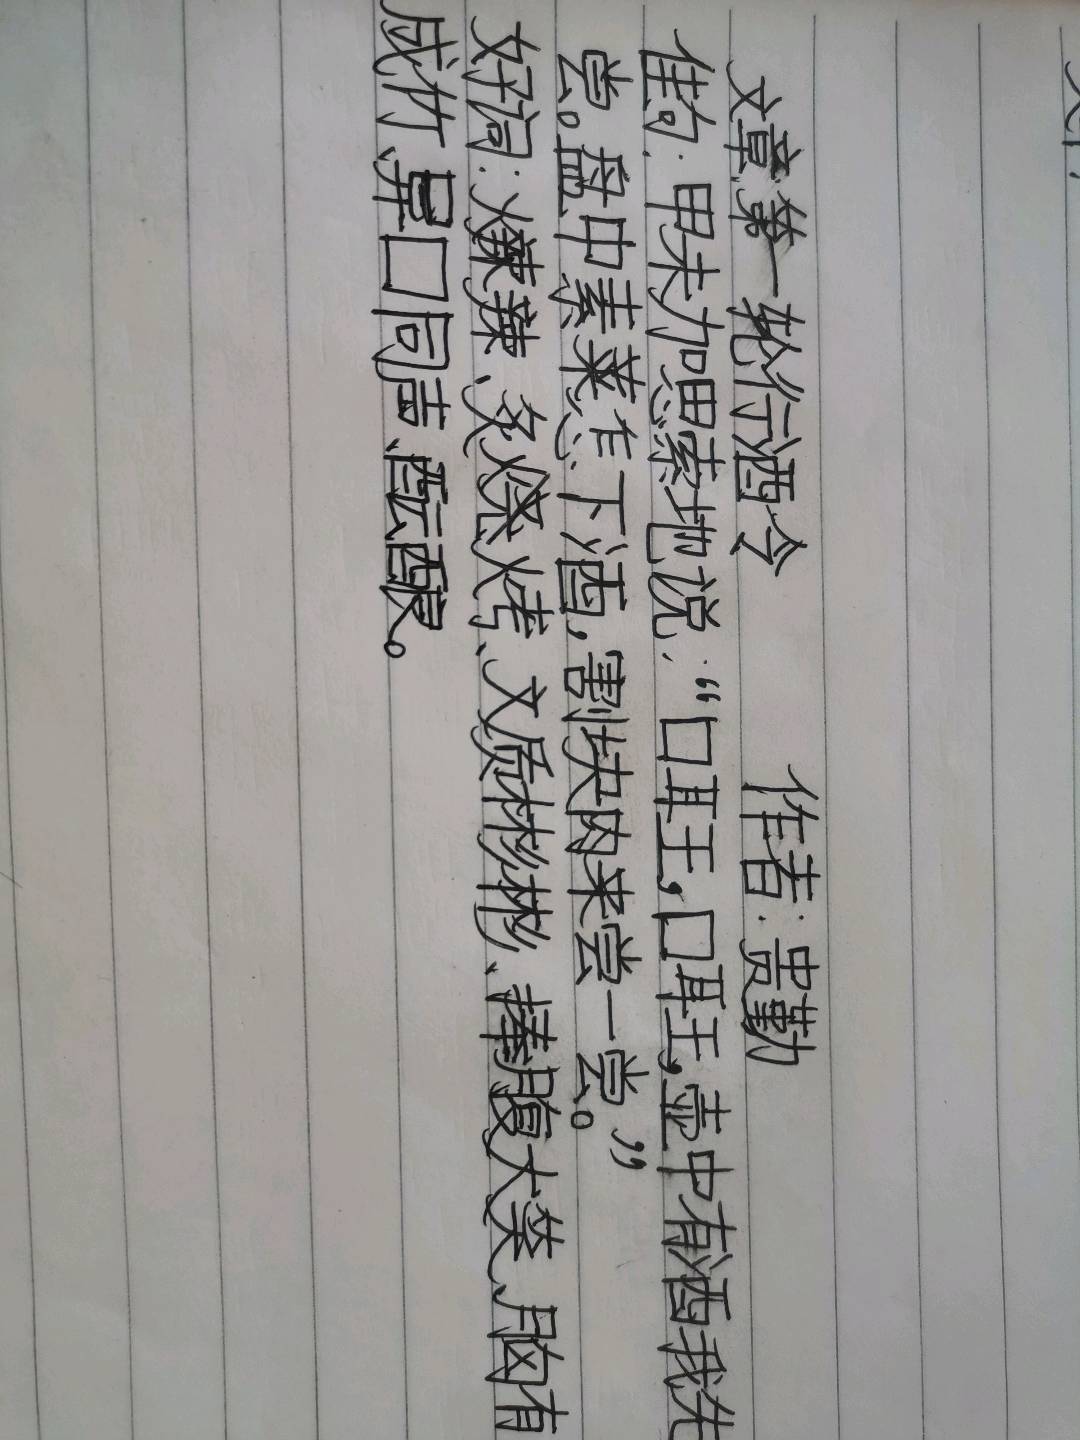 文章:第一轮行酒令 作者:贵勤
佳句:甲未加思索地说:“口耳王,口耳王,壶中有酒我先
尝。盘中素菜怎下酒,割块肉来尝一尝。”
好词:爆辣、爻燎烤、文质彬彬、捧腹大笑、胸有
成竹、异口同声、酝酿。